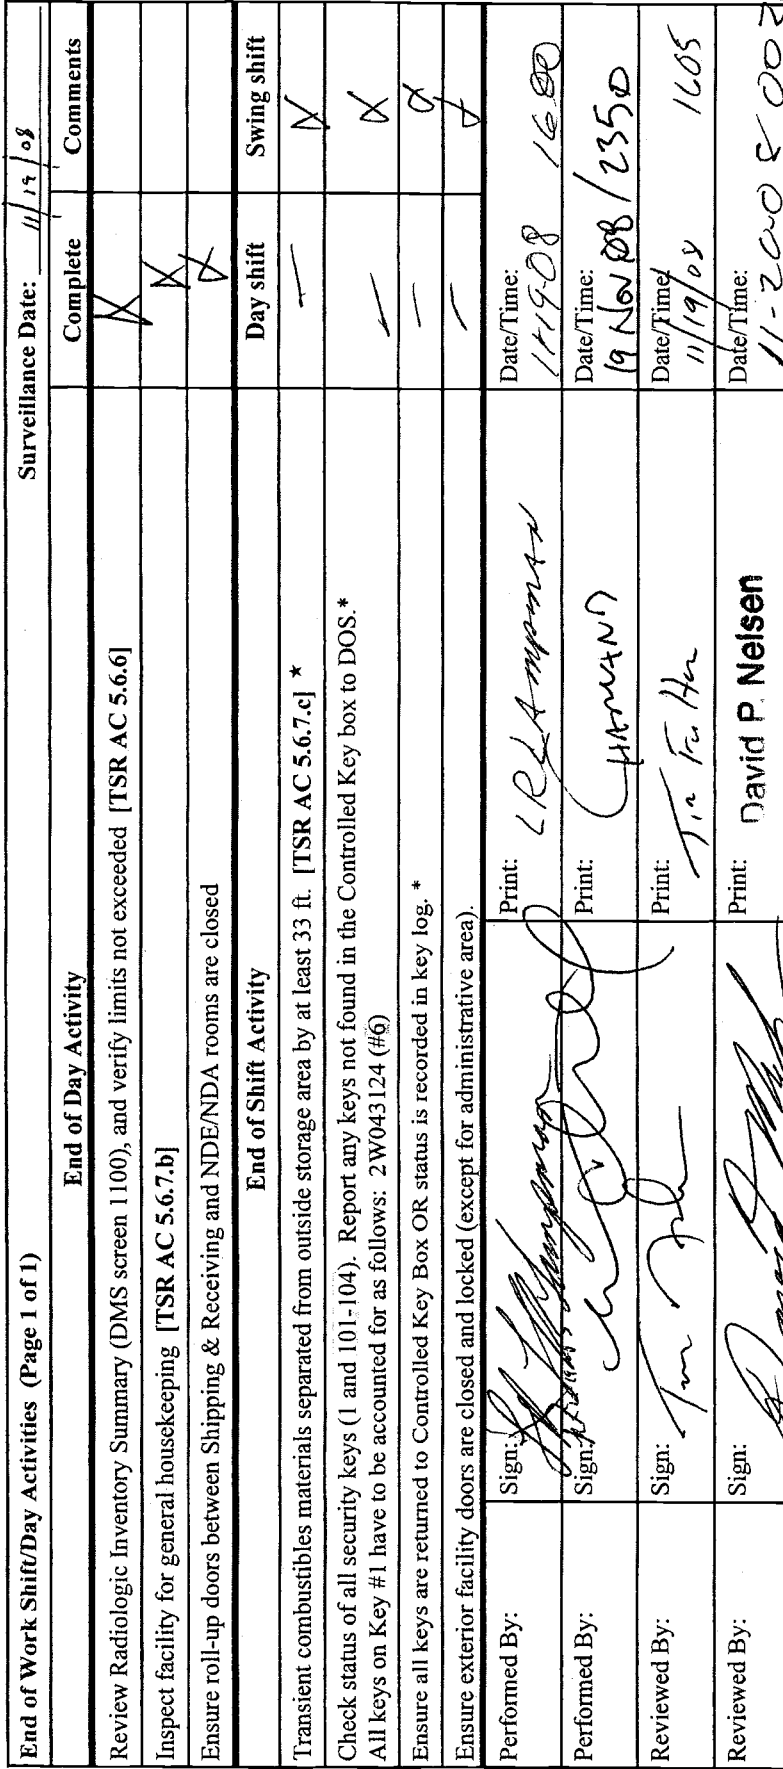 End of Work Shift/Day Activities (Page 1 of 1) Surveillance Date: 11/19/08
End of Day Activity Complete Comments
Review Radiologic Inventory Summary (DMS screen 1100), and verify limits not exceeded [TSR AC 5.6.6] X
Inspect facility for general housekeeping [TSR AC 5.6.7.b] X
Ensure roll-up doors between Shipping & Receiving and NDE/NDA rooms are closed X
End of Shift Activity Day shift Swing shift
Transient combustibles materials separated from outside storage area by at least 33 ft. [TSR AC 5.6.7.c] * — X
Check status of all security keys (1 and 101-104). Report any keys not found in the Controlled Key box to DOS.*
All keys on Key #1 have to be accounted for as follows: 2W043124 (#6) — X
Ensure all keys are returned to Controlled Key Box OR status is recorded in key log. * — X
Ensure exterior facility doors are closed and locked (except for administrative area). — X
Performed By: Sign: Print: LR LAmpman Date/Time: 11-19-08 1600
Performed By: Sign: Print: Date/Time: 19 Nov 08/2350
Reviewed By: Sign: Print: Date/Time: 11/19/08 1605
Reviewed By: Sign: Print: David P. Nelsen Date/Time: 11-20-08 002